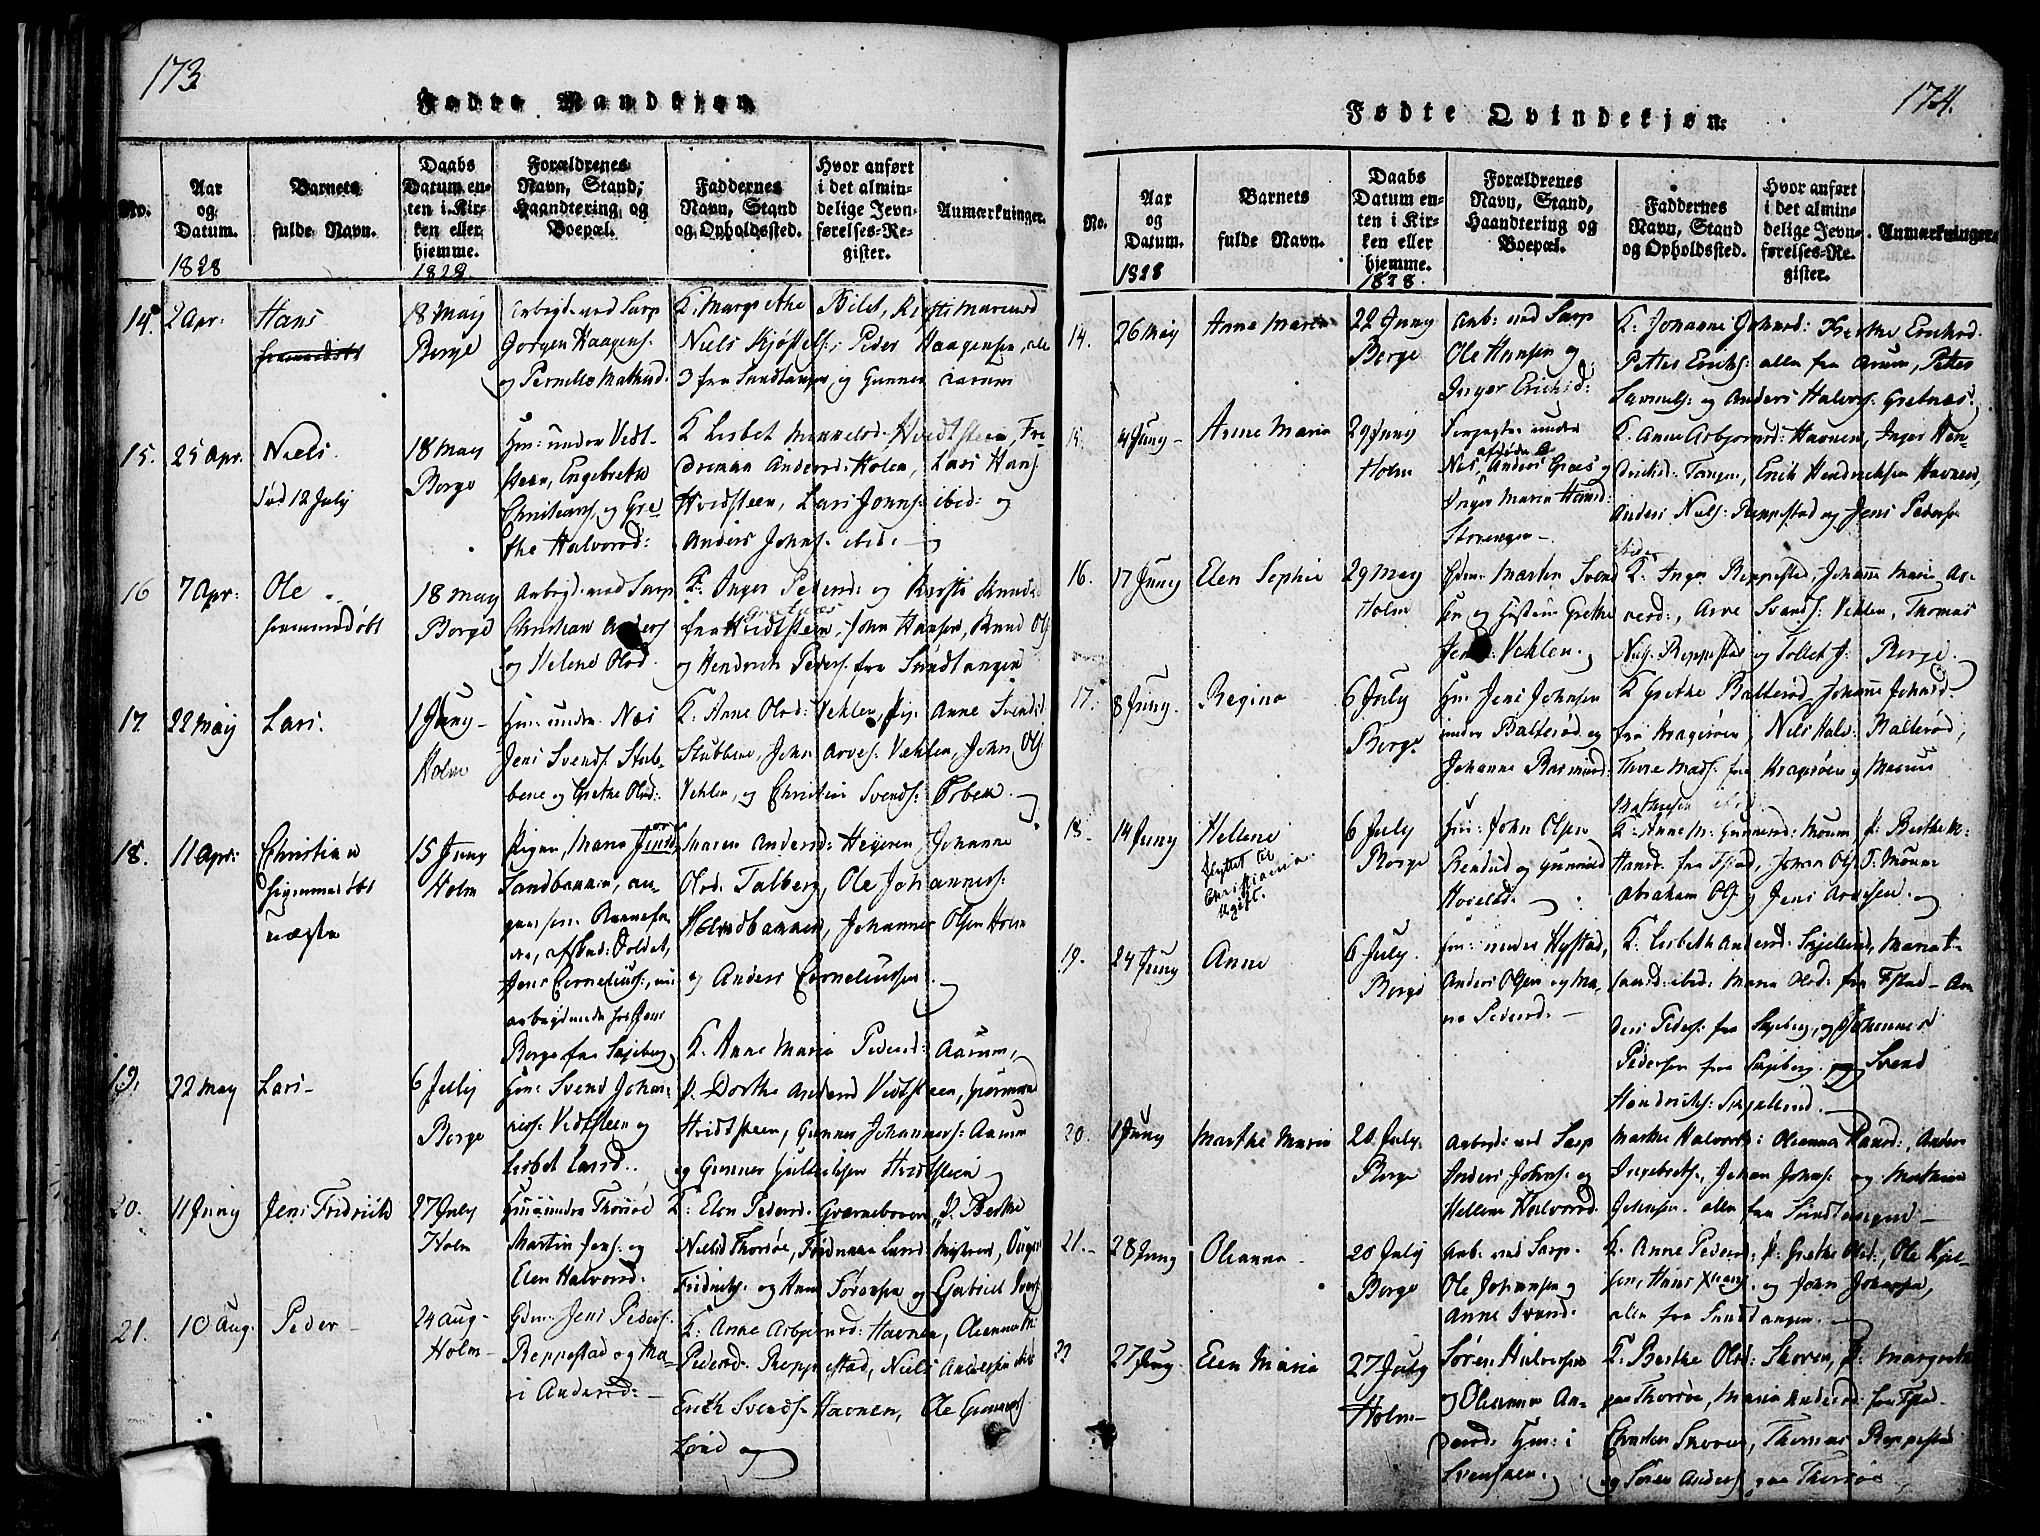 173
Fødte Mandkjøn
No.
Aar
og
Datum.
1828
Barnets
fulde Navn.
Daabs
Datum en-
ten i Kir-
ken eller
hjemme.
1828
Forældrenes
Navn, Stand,
Haandtering og
Boepæl.
Faddernes
Navn, Stand
og Opholdssted.
Hvor anført
i det almin-
delige Jevn-
førelses-Re-
gister.
Anmærkninger.
14. 2 Apr:
Hans
hiemmedøbt
18 May
Borge
Arbeyd. ved Sarp
Jørgen Haagens.
og Pernille
K: Margrethe
Niels Kjøstels: Peder Haagensen, alle
3 fra Sandtangen, og Gunner Aarum
15. 25 Apr.
Niels.
død 12 July
18 May
Borge
Hm: under Vedt-
steen, Engebreth
Christians. og Gre-
the Halvorsd:
K Lisbet Hvidtsteen, Fre-
Andersd: Holen, Lars Hans.
Hvidsteen, Lars Johns. ibid: og
Anders Johns. ibid.
16 7 Apr:
Ole
hiemmedøbt
18 May
Borge
Arbeyd. ved Sarp
Christian Anders.
og Helene Olsd.
K: Inger Pedersd: og Kirsti Knudsd
Grætnæs
fra Hvidtsteen, John Hansen, Knud Ols.
og Hendrich Peders. fra Sandtangen
17. 22 May
Lars.
1 Juny
Holm
Hm: under Næs
Jens Svends. Stub-
bene og Grethe Olsd:
K: Anne Olsd: Vehlen, Pig: Anne Svendsd
Stubbene, John Arves. Vehlen, John Ols.
Vehlen, og Christian Svends: Orbek.
18. 11 Apr:
Christian
hiemmedøbt
uægte
15 Juny
Holm
Pigen, Maria Jensd
Sandbakken, an-
given som Barnefa-
der, afskud: Soldat,
Jens Cornelius:, nu
arbeydende hos Jens
Borge fra Skjeberg
Maren Andersd: Heyeren, Johanne
Olsd. Talberg, Ole Johanness:
Holmsbakken, Johannes Olsen Holm
og Anders Corneliussen.
19. 22 May
Lars
6 July
Borge
Hm: Svend Johan-
ness: Vidtsteen og
Lisbet Larsd.
K. Anne Maria Pedersd: Aarum,
P. Dorthe Andersd Vidtsteen,
Hvidtsteen, Gunner Johanness: Aarum
og Gunner Gulbrchsen Hvidtsteen
20. 11 Juny
Jens Fridrich
27 July
Holm
Huusm under Thorsøe
Martin Jens. og
Elen Halvorsd:
K: Elen Pedersd. P. Berthe
Nielsd Thorsøe,
Fridrichs. og Hans Sørensen og Gabriel
21. 10 Aug.
Peder
24 Aug
Holm
Gdm: Jens Peders.
Reppestad og Ma-
ri Andersd:
K: Anne Asbjørnsd: Havnen, Oleanna
Pedersd. Reppestad, Niels Andersen
Erich Svends. Havnen, Ole Gunners.
Lønd og
174.
Fødte Qvindekjøn.
No.
Aar
og
Datum.
1828
Barnets
fulde Navn.
Daabs
Datum en-
ten i Kir-
ken eller
hjemme.
1828.
Forældrenes
Navn, Stand,
Haandtering og
Boepæl.
Faddernes
Navn, Stand
og Opholdssted.
Hvor anført
i det almin-
delige Jevn-
førelses-Re-
gister.
Anmærkninger.
14. 26 May
Anne Maria
22 Juny
Borge
Arb: ved Sarp
Ole Hansen og
Inger Erichsd:
K: Johanne Johnsd: Berthe Erichsd.
Petter Erichs: alle fra Arum, Petter
Samuels: og Anders Halvors. Gretnæs.
15. 4 Juny
Anne Maria
29 Juny
Holm
Forpagter under
Næs, afdøde Anders Græs. og
Inger Maria Hansd:
Storengen
K. Anne Asbjørnsd: Havnen, Inger Hen-
drichsd: Tangen, Erich Hendrichsen Havnen,
Anders Niels: Reppestad og Jens Pedersen
16. 17 Juny
Elen Sophie
29 May
Holm
Gdm: Martin Svend
sen og Hustrue Grethe
Jensd: Vehlen.
K: Inger Reppestad, Johanne Marie Ar-
vesd:, Arve Svends: Vehlen, Thomas
Niels. Reppestad og Tollef J. Borge.
17. 8 Juny.
Regina
6 July
Borge
Hm: Jens Johnsen
under Balterød og
Johanne Rasmusd:
K Grethe Balterød, Johanne Johansd.
fra Kragerøen, Niels Halv: Balterød,
Thore Mads. fra Kragerøen og Marcus
Mathisen ibid.
18. 14 Juny
Hellene
flyttet til
Christiania
Ugift.
6 July
Borge
Hm: John Olsen
Rensud og Gunnild
Hovelsd.
K: Anne M: Gunnersd: Moum P: Berthe M:
Hansd. fra Fjstad, Johan Ols. Moum
Abraham Ols. og Jens Arnesen.
19. 24 Juny
Anne
6 July.
Borge
Hm: under Hystad,
Anders Olsen og Ma-
ria Pedersd.
K: Lisbeth Andersd: Skjelund, Maria I-
sacsd: ibid: Maria Olsd: fra Fjstad, An-
ders Peders: fra Skjeberg, og Johannes
Pedersen fra Skjeberg og Svend
Hendrichs: Skjelund.
20. 1 Juny
Marthe Maria
20 July.
Borge
Arbeyd: ved Sarp
Anders Johns: og
Hellene Halvorsd.
Marthe Halvorsd: Oleanna Hansd:, Anders
Ingebrets., Johan Johns: og Mathias
Johnsen. alle fra Sandtangen
21. 28 Juny
Oleanna
20 July
Borge
Arb: ved Sarp.
Ole Johansen og
Anne Svensd.
K. Anne Pedersd: P: Grethe Olsd:, Ole Kjel-
sen, Hans Xtians. og John Johansen,
alle fra Sandtangen.
22 27 Juny.
Elen Maria
27 July
Holm
Søren Halvorsen
og Oleanna An-
dersd: Hm: i
Svensken.
K: Berthe Olsd: Skoren, P: Margrethe
paa Thorsøe, Maria Andersd: fra Fjstad.
Christen Skoren, Thomas Reppestad
og Søren Anders. paa Thorsøe